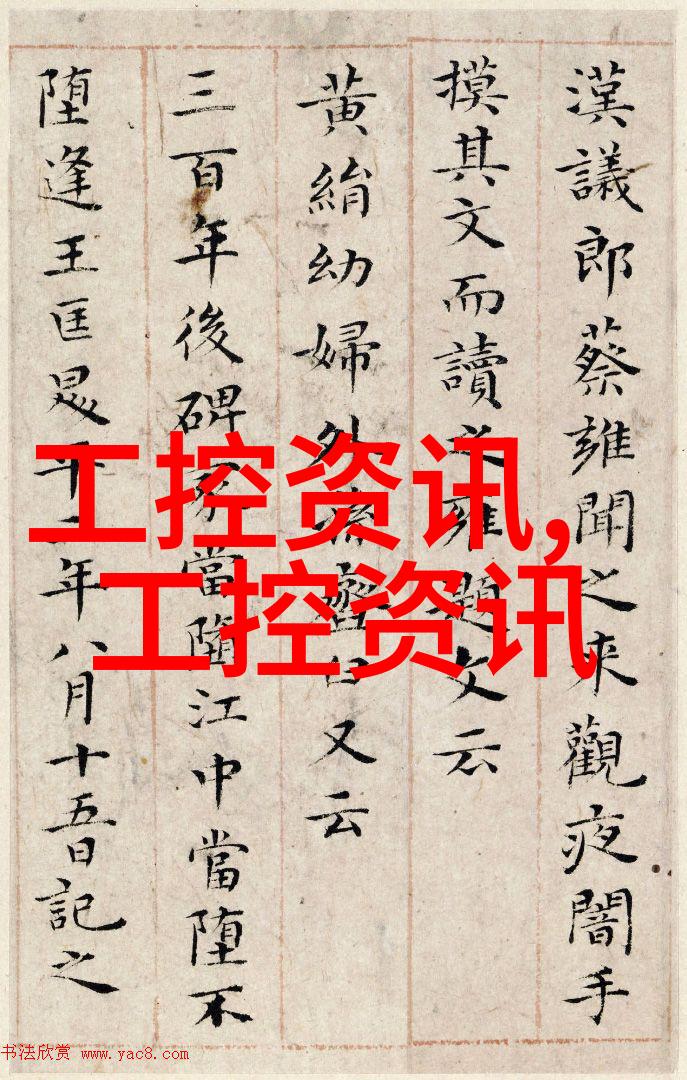 漢議郎蔡雍聞之来觀夜闇手
摸其文而讀之雍題文云
黄絹幼婦外孫齏臼又云
三百年後碑冢當隨江中當堕不
堕逢王匡昇平二年八月十五日記之
工控资讯,
工控资讯
书法欣赏 www.yac8.com